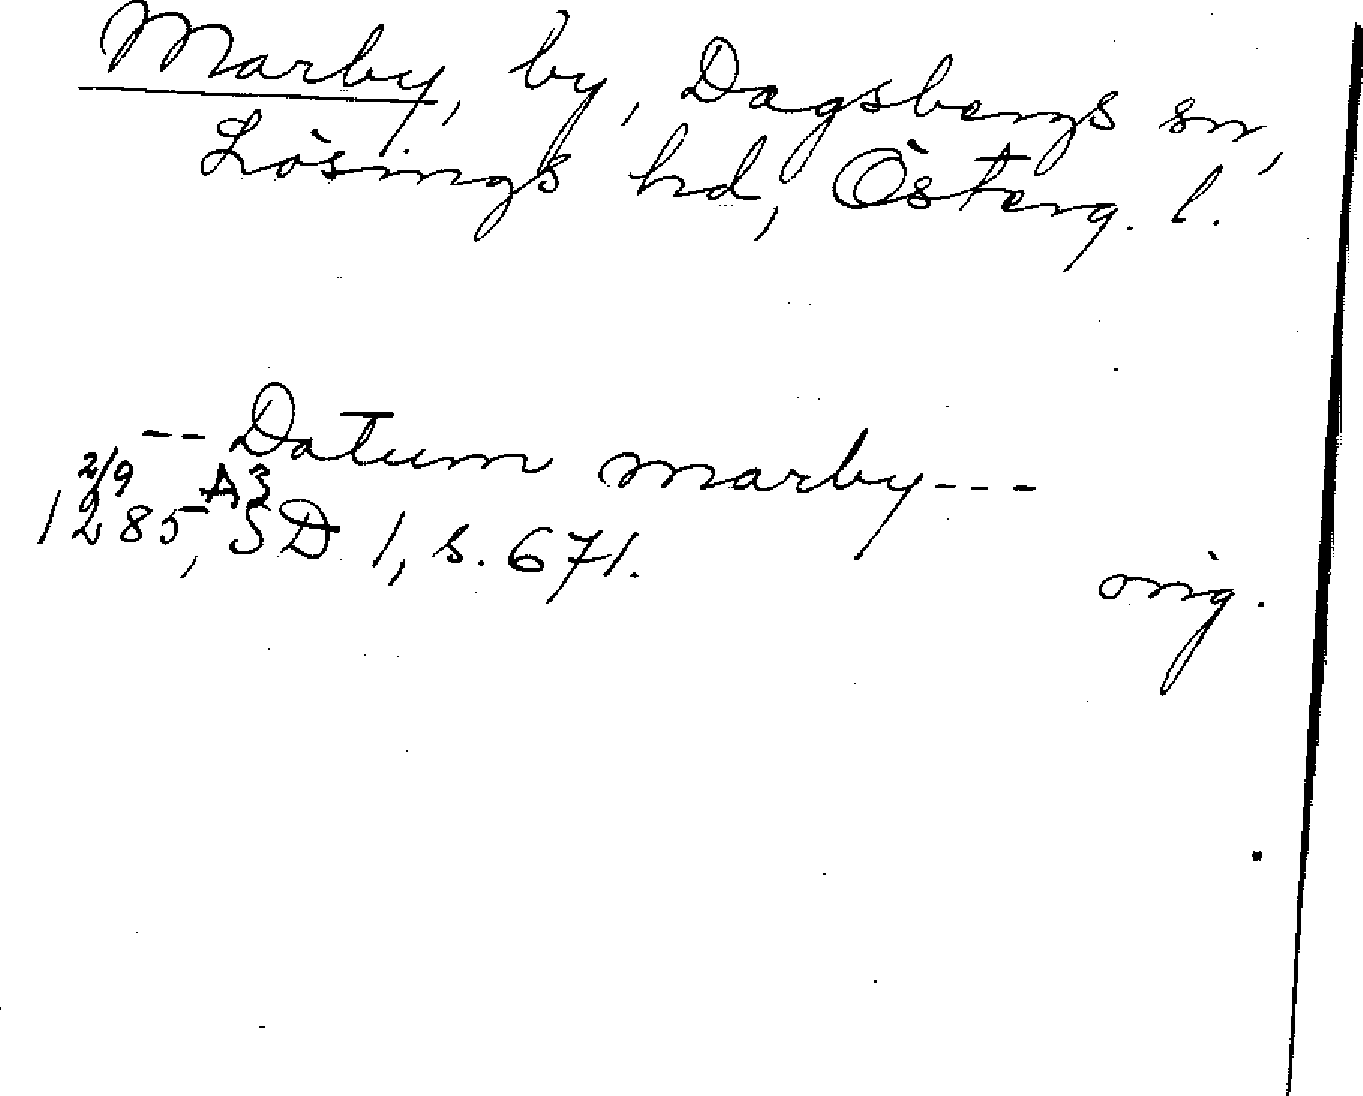 Marby, by, Dagsbergs sn,
Lösings hd, Österg. l.
-- Datum marby ---
2/9 A3
1285, SD 1, s. 671.
orig.